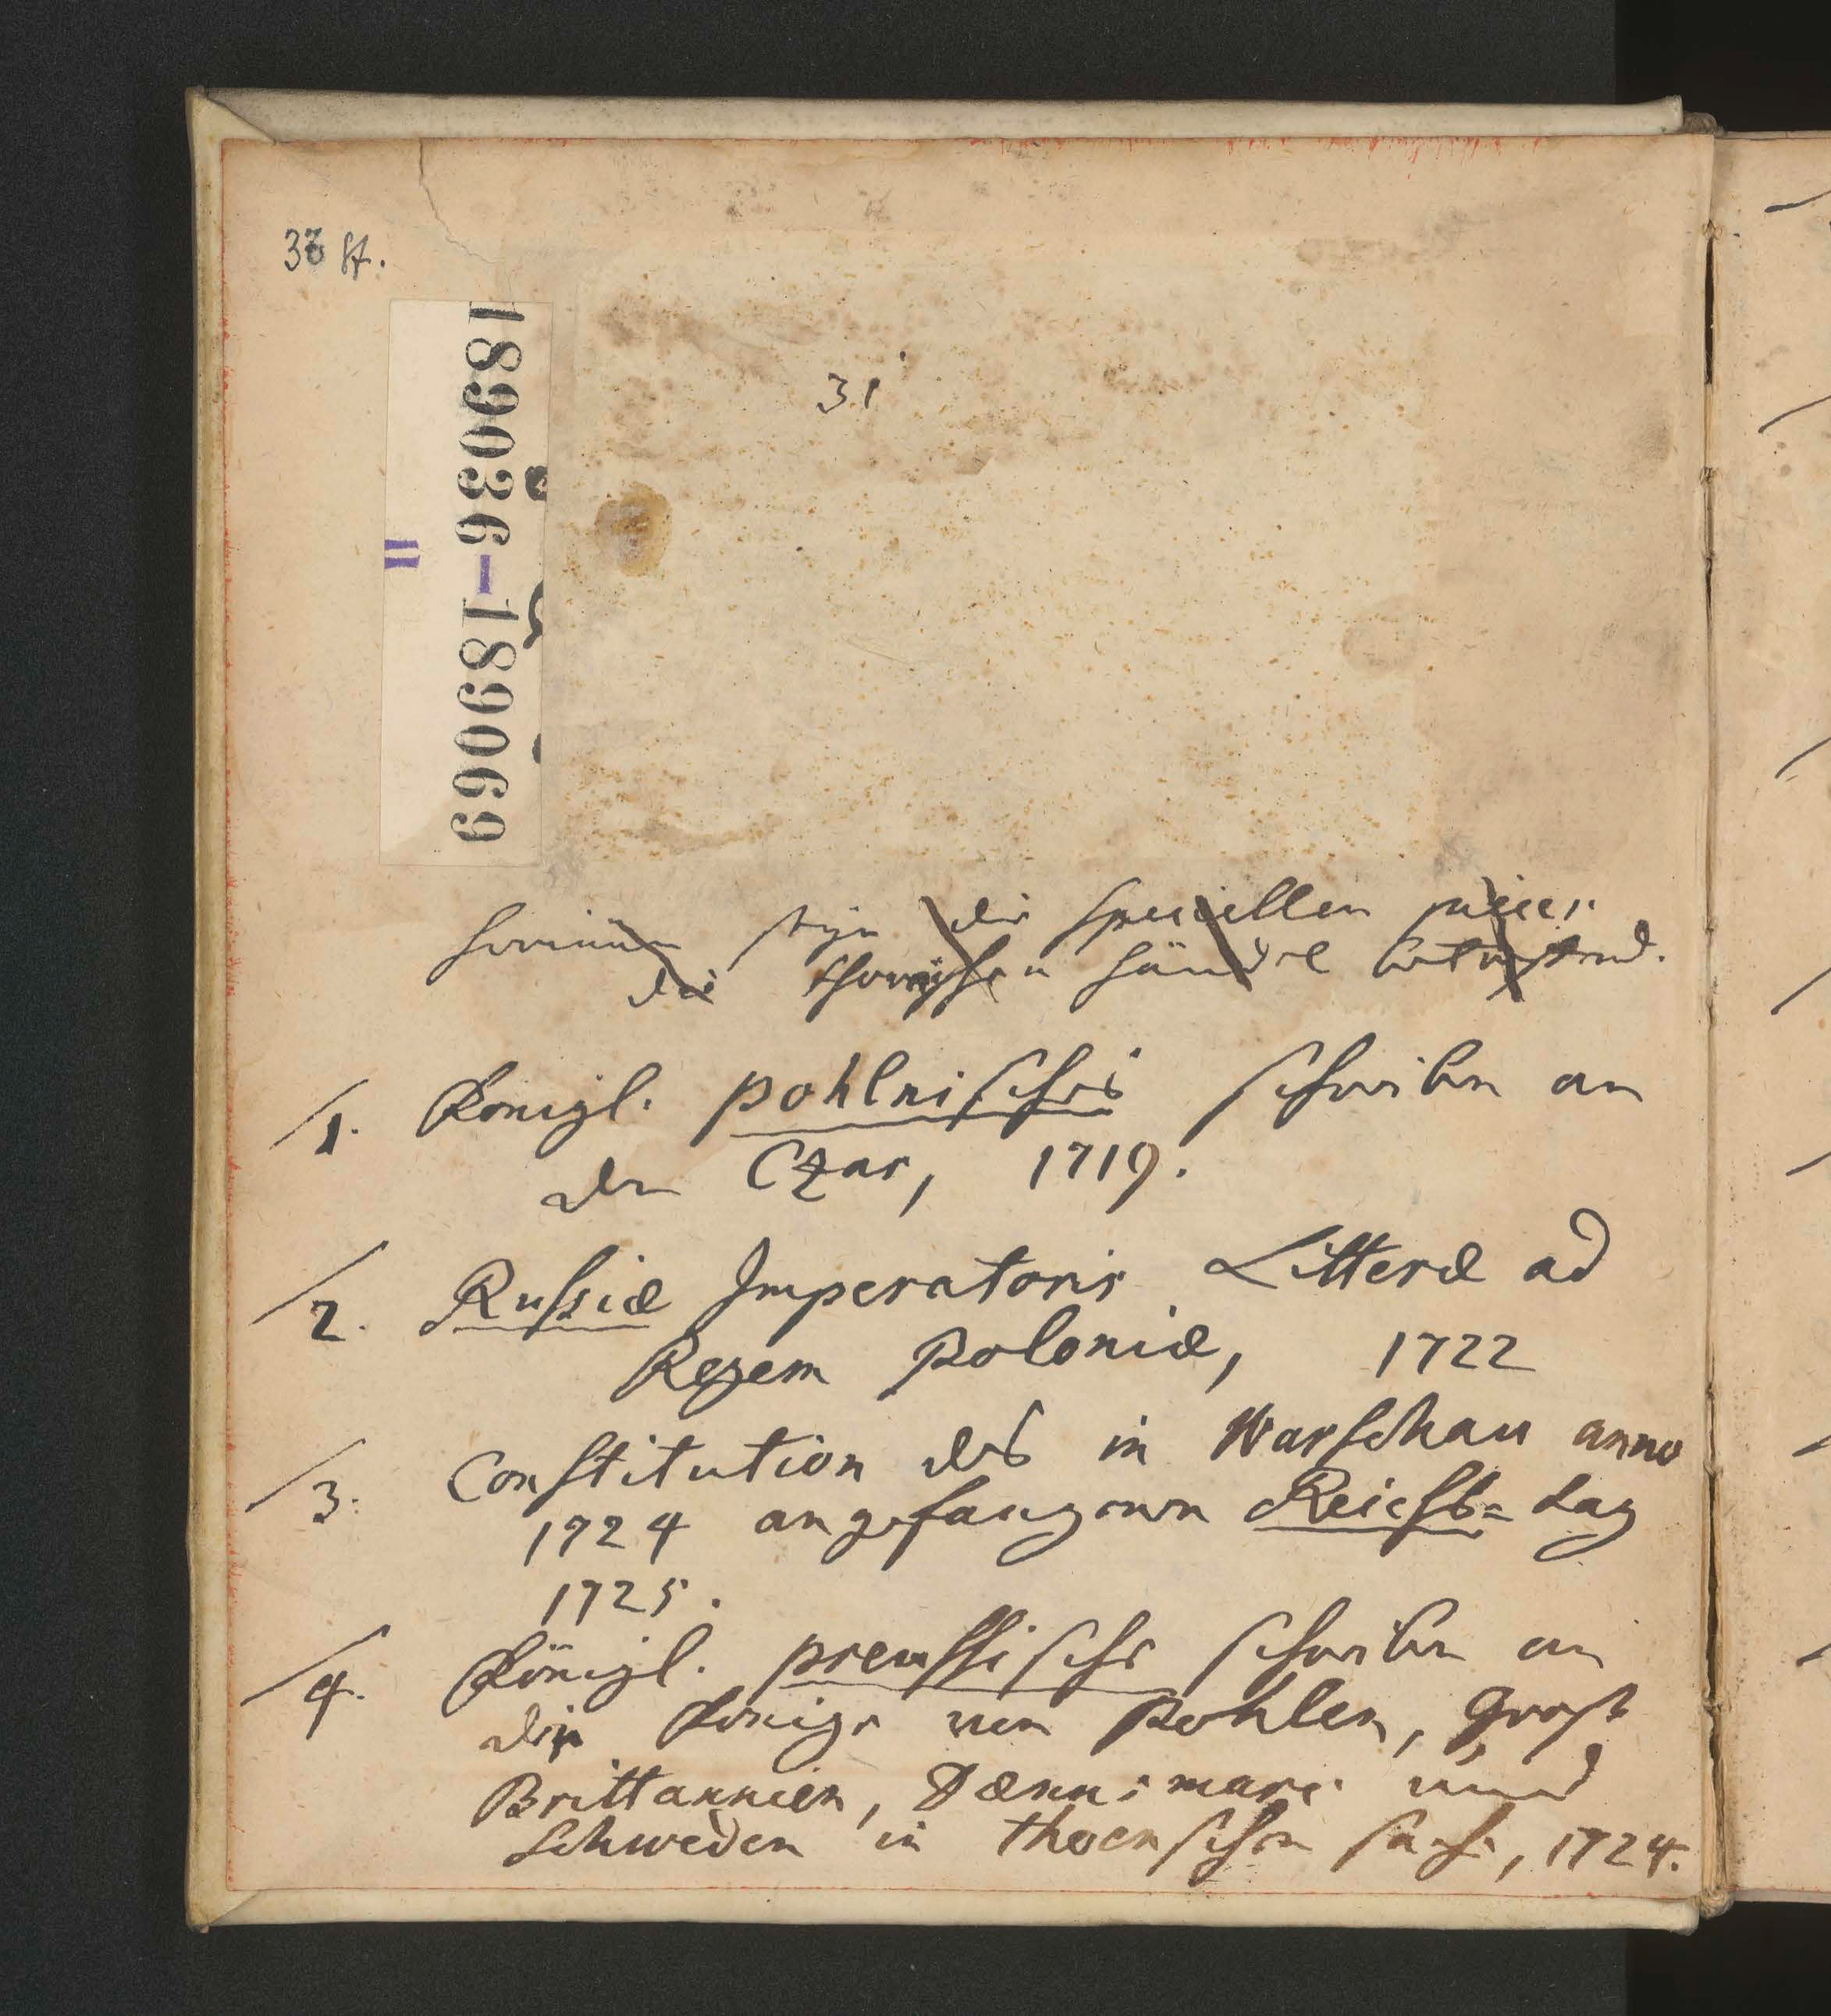 33 St.
189036-189069
II
31
hierinnen die speciellen
die händel betreffend.
1. Königl. pohlnisches schreiben an
den Czar, 1719.
2. Russiæ Imperatoris Litteræ ad
Regem Poloniæ, 1722
3. Constitution des in Warschau anno
1724 angefangenen Reichs= tag
1725.
4. Königl. preussische schreiben an
die Könige von Pohlen, Groß
Brittannien, Dænnemarc und
Schweden in thornschen sache, 1724.